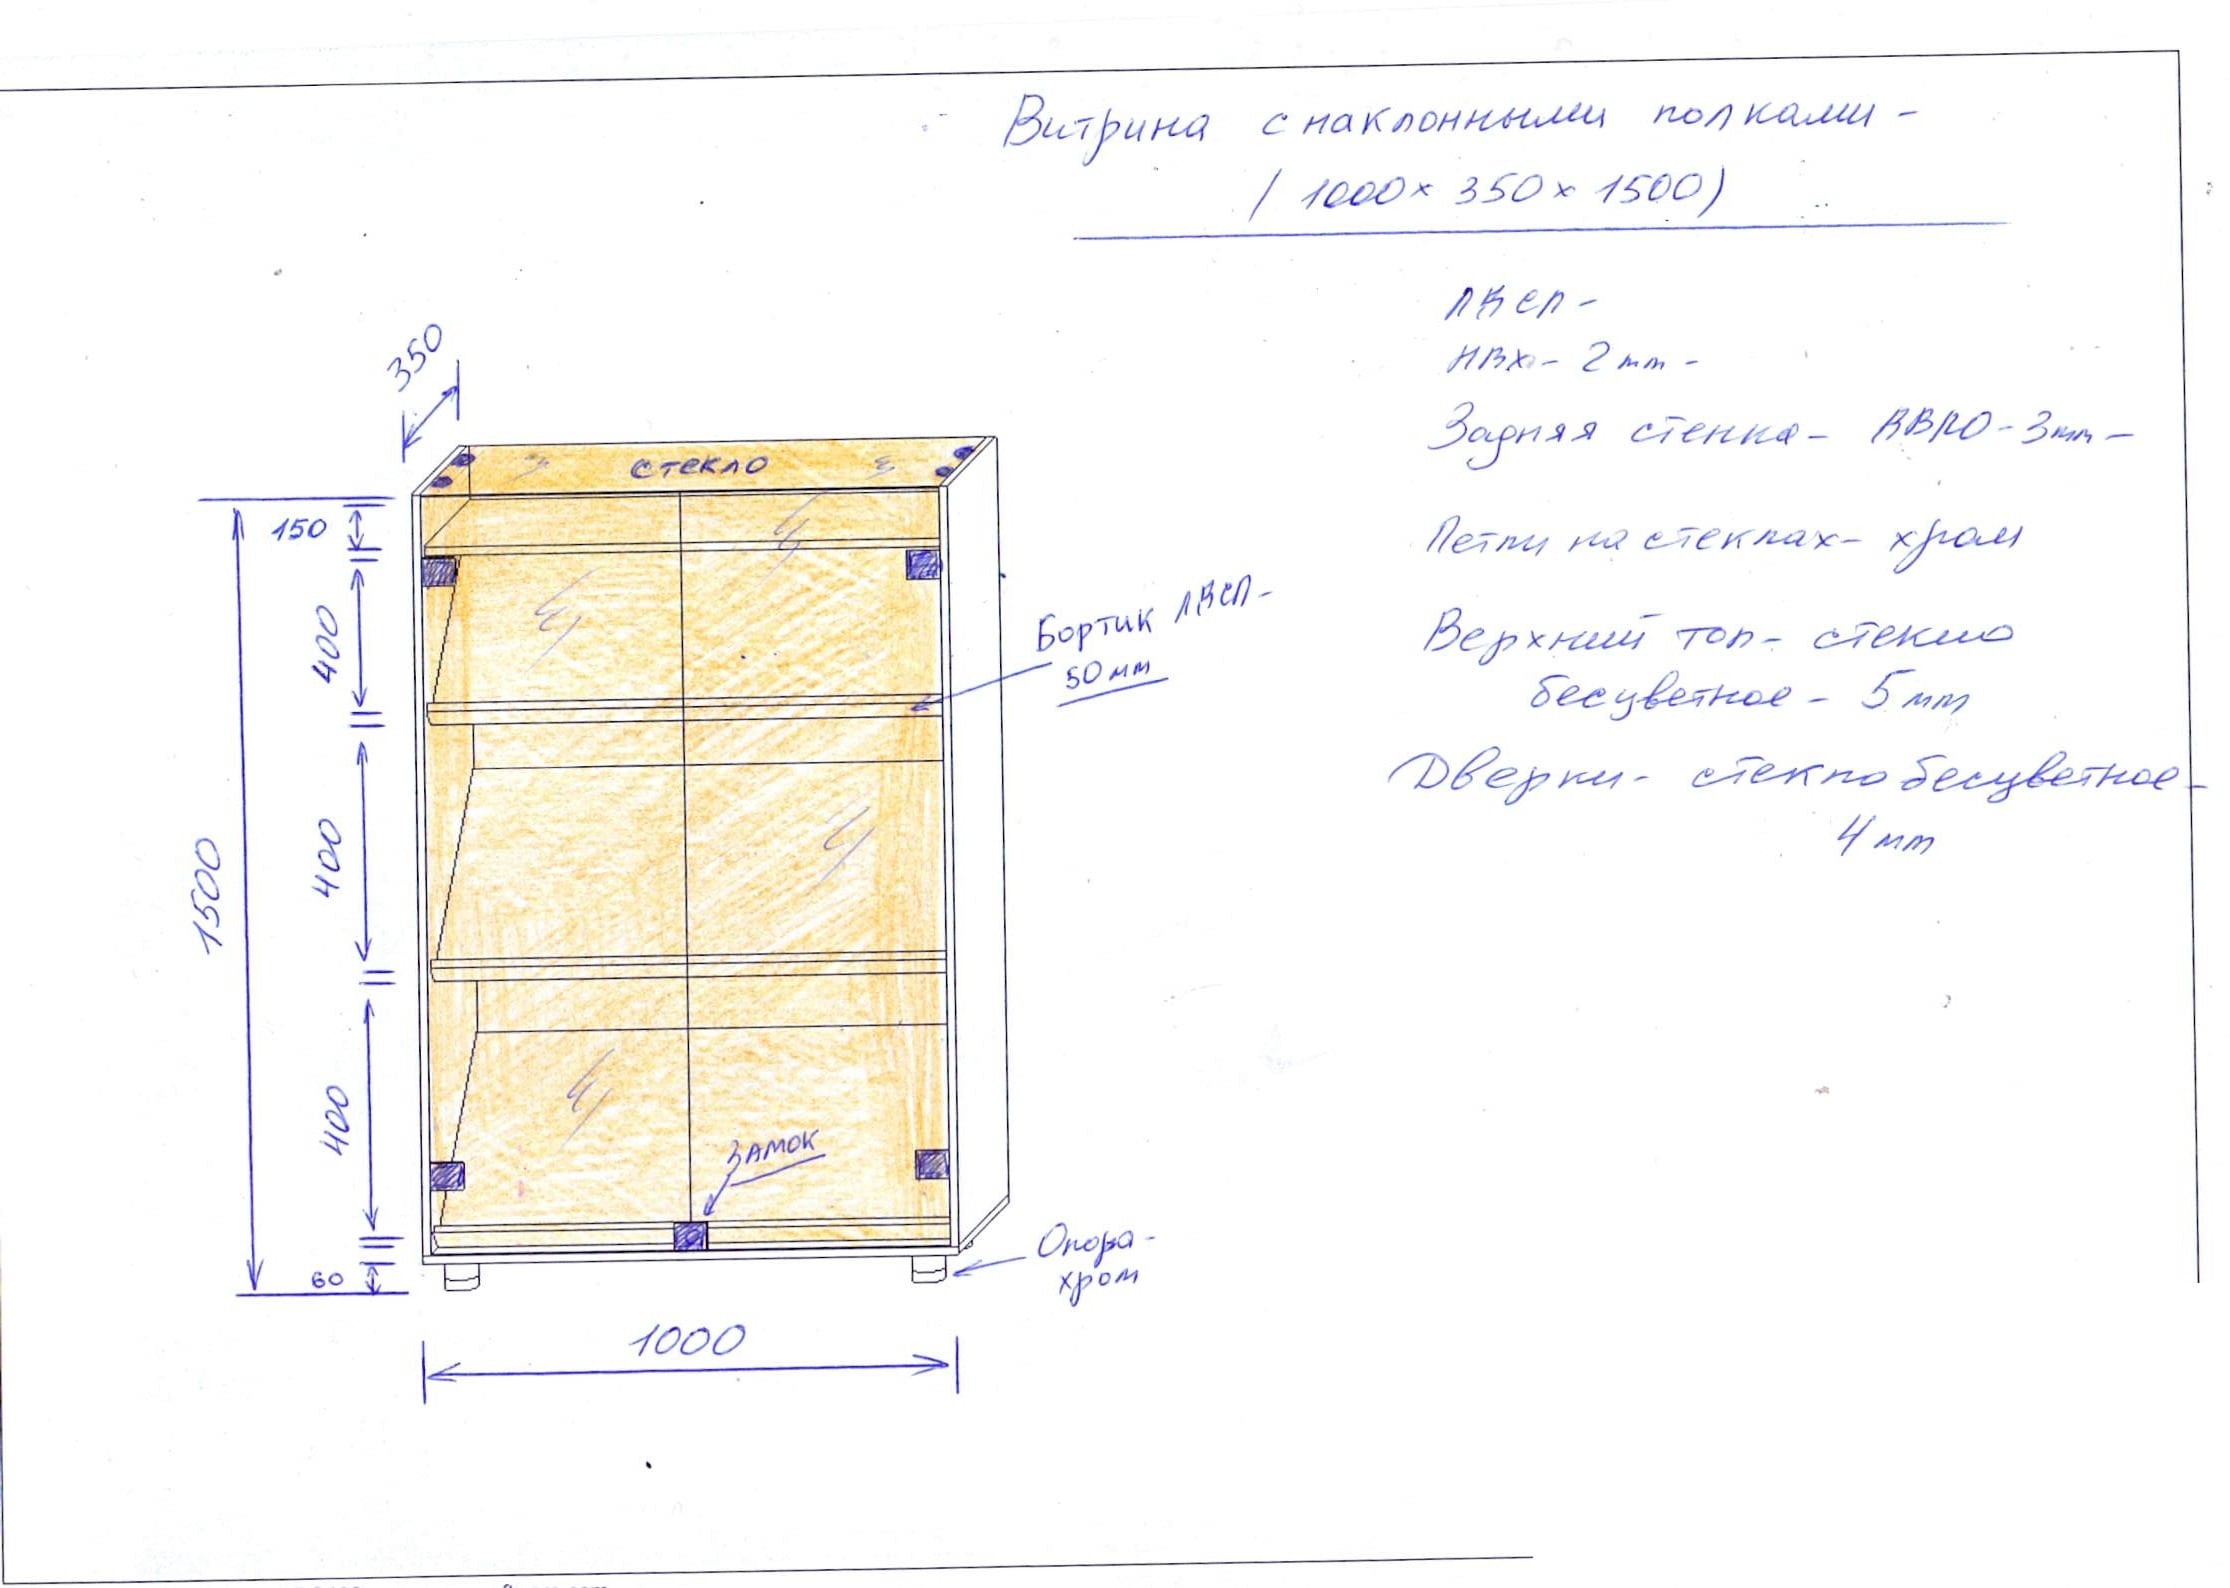 Витрина с наклонными полками -
( 1000 х 350 х 1500)
ЛДСП -
ПВХ - 2 мм -
Задняя стенка - ДВПО - 3мм -
Петли на стеклах - хром
Верхний топ - стекло
бесцветное - 5 мм
Дверки - стекло бесцветное -
4 мм
350
стекло
150
400
Бортик ЛДСП -
50 мм
400
1500
400
замок
Опора -
хром
60
1000